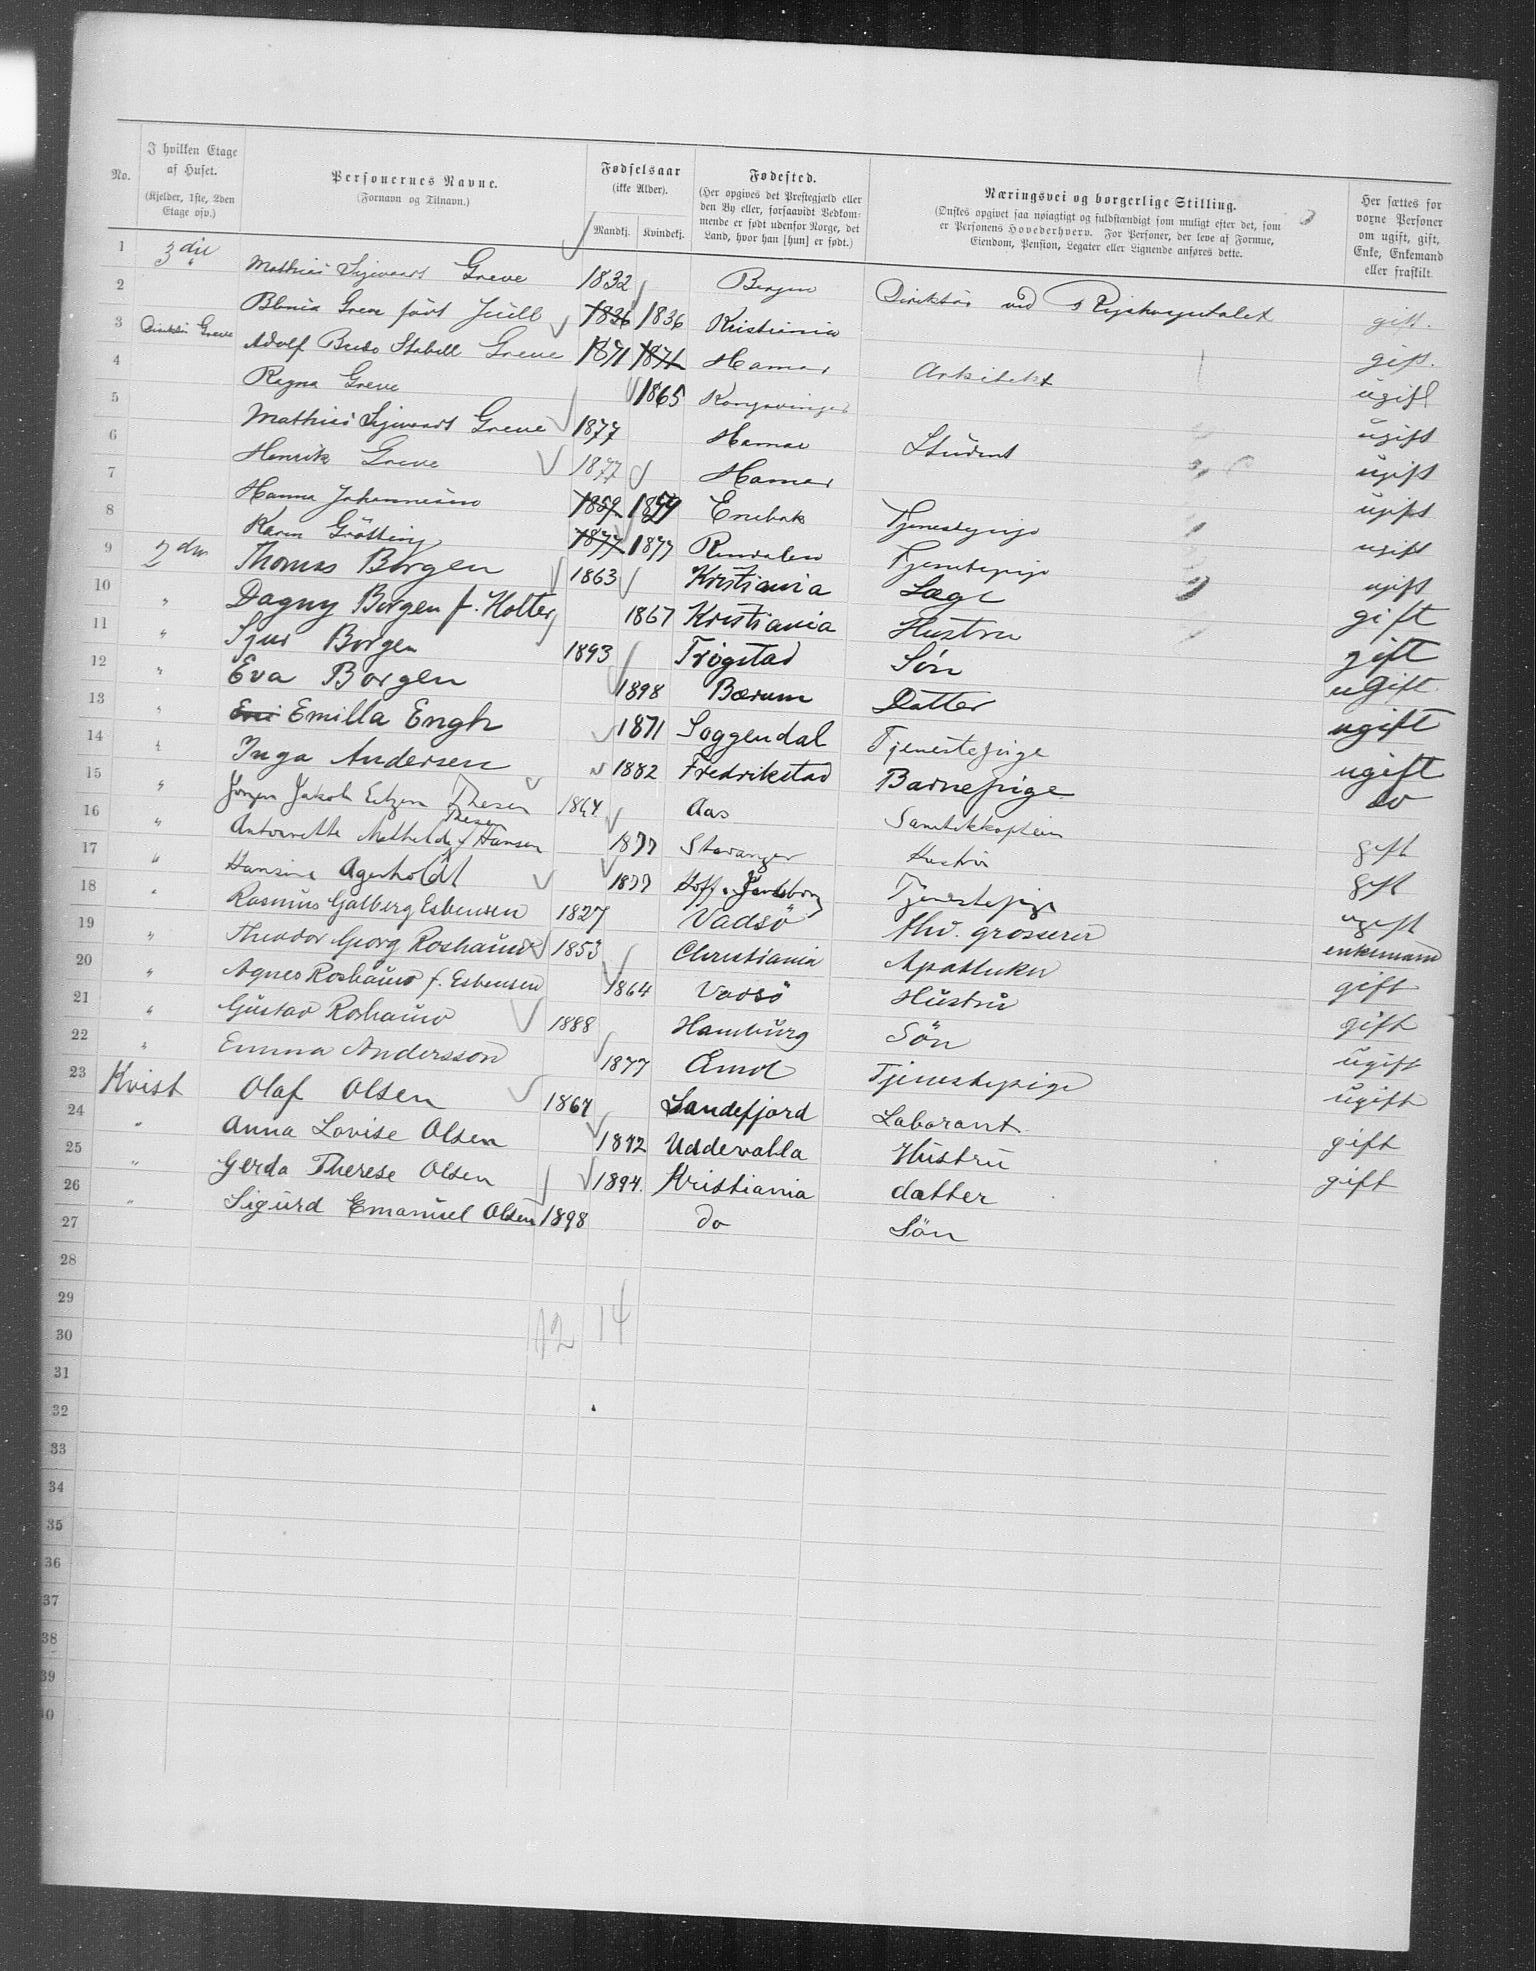 No.
I hvilken Etage af Huset. (Kjelder, 1ste, 2den Etage osv.)
Personernes Navne. (Fornavn og Tilnavn.)
Fødselsaar (ikke Alder).
Mandkj. Kvindekj.
Fødested. (Her opgives det Prestegjæld eller den By eller, forsaavidt Vedkommende er født udenfor Norge, det Land, hvor han [hun] er født.)
Næringsvei og borgerlige Stilling. (Ønskes opgivet saa nøiagtigt og fuldstændigt som muligt efter det, som er Personens Hovederhverv. For Personer, der leve af Formue, Eiendom, Pension, Legater eller Lignende anføres dette.
Her sættes for voxne Personer om ugift, gift, Enke, Enkemand eller fraskilt.
1 3die Mathias Sigwardt Greve 1832 Bergen Direktør ved Rigshospitalet gift.
2 " Greve født Juell 1836 1836 Kristiania gift.
3 Direktør Greve Adolf Bredo Stabell Greve 1871 1871 Hamar Arkitekt ugift
4 Ragna Greve 1865 Kongsvinger ugift
5 Mathias Sigwardt Greve 1877 Hamar Student ugift
6 Henrik Greve 1877 Hamar ugift
7 Hanna Johannesen 1859 1859 Enebak Tjenestepige ugift
8 Karen Grötting 1877 1877 Rendalen Tjenestepige ugift
9 2den Thomas Borgen 1863 Kristiania Læge gift
10 " Dagny Borgen f. Holter 1867 Kristiania Hustru gift
11 " Sjur Borgen 1893 Trøgstad Søn ugift
12 " Eva Borgen 1898 Bærum Datter ugift
13 " Emilla Engh 1871 Soggendal Tjenestepige ugift
14 " Inga Andersen 1882 Fredrikstad Barnepige do
15 " Jørgen Jakob Eitzen Thesen 1864 Aas gift
16 " Antoinette Mathilde Thesen f Hansen 1877 Stavanger Hustru gift
17 " Hansine Agerholdt 1877 Hoff Tjenestepige ugift
18 " Rasmus Galberg Esbensen 1827 Vadsö fhv. grosserer enkemand
19 " Theodor Georg Roshauw 1853 Christiania Apotheker gift
20 " Agnes Roshauw f. Esbensen 1864 Vadsö Hustru gift
21 " Gustav Roshauw 1888 Hamburg Sön ugift
22 " Emma Andersson 1877 Åmol Tjenestepige ugift
23 Kvist Olaf Olsen 1867 Sandefjord Laborant gift
24 " Anna Lovise Olsen 1872 Uddevalla Hustru gift
25 " Gerda Therese Olsen 1894. Kristiania datter
26 " Sigurd Emanuel Olsen 1898 do Sön
27
28
29
12 14
30
31
32
33
34
35
36
37
38
39
40